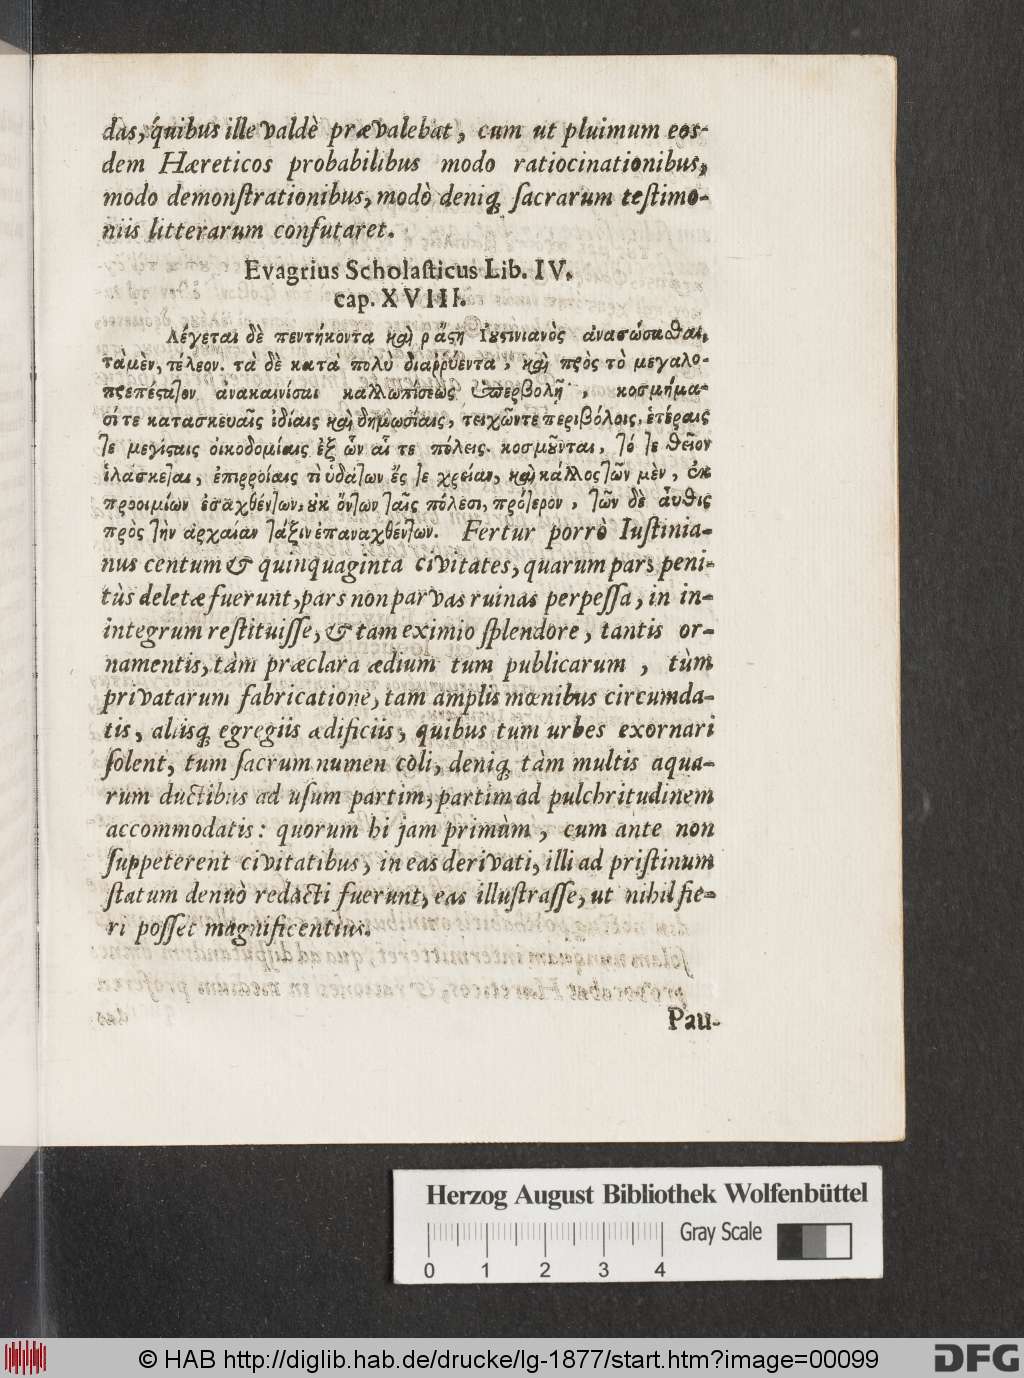 das, quibus ille valdè prævalebat, cum ut pluimum eos-
dem Hæreticos probabilibus modo ratiocinationibus,
modo demonſtrationibus, modò deniq; ſacrarum teſtimo-
niis litterarum confutaret.
Evagrius Scholaſticus Lib. IV.
cap. XVIII.
Λέγεται δὲ πεντήκοντα καὶ ρ ἄστη Ιουστινιανὸς ἀνασώσασθαι,
τὰ μὲν, τέλεον. τὰ δὲ κατὰ πολὺ διαῤῥύεντα, καὶ πρὸς τὸ μεγαλο-
πρεπέστατον ἀνακαινίσαι καλλωπίσεως ὑπερβολῇ, κοσμήμα-
σί τε κατασκευαῖς ἰδίαις καὶ δημωσίαις, τειχῶν τε περιβόλοις, ἑτέραις
τε μεγίσταις οἰκοδομίαις ἐξ ὧν αἵ τε πόλεις κοσμοῦνται, τό τε θεῖον
ἱλάσκεται, ἐπιῤῥοίαις τὶ ὑδάτων ἔς τε χρείαν, καὶ κάλλος τῶν μὲν, ἐκ
προοιμίων ἐσαχθέντων, οὐκ ὄντων ταῖς πόλεσι, πρότερον, τῶν δὲ αὖθις
πρὸς τὴν ἀρχαίαν τάξιν ἐπαναχθέντων. Fertur porrò Iuſtinia-
nus centum & quinquaginta civitates, quarum pars peni-
tùs deletæ fuerunt, pars non parvas ruinas perpeſſa, in in-
integrum reſtituiſſe, & tam eximio ſplendore, tantis or-
namentis, tàm præclara ædium tum publicarum, tùm
privatarum fabricatione, tam amplis mœnibus circumda-
tis, aliisq; egregiis ædificiis, quibus tum urbes exornari
ſolent, tum ſacrum numen coli, deniq; tàm multis aqua-
rum ductibus ad uſum partim, partim ad pulchritudinem
accommodatis: quorum hi jam primùm, cum ante non
ſuppeterent civitatibus, in eas derivati, illi ad priſtinum
ſtatum denuò redacti fuerunt, eas illuſtraſſe, ut nihil fie-
ri poſſet magnificentius.
Pau-
Herzog August Bibliothek Wolfenbüttel
Gray Scale
0 1 2 3 4
© HAB http://diglib.hab.de/drucke/lg-1877/start.htm?image=00099
DFG